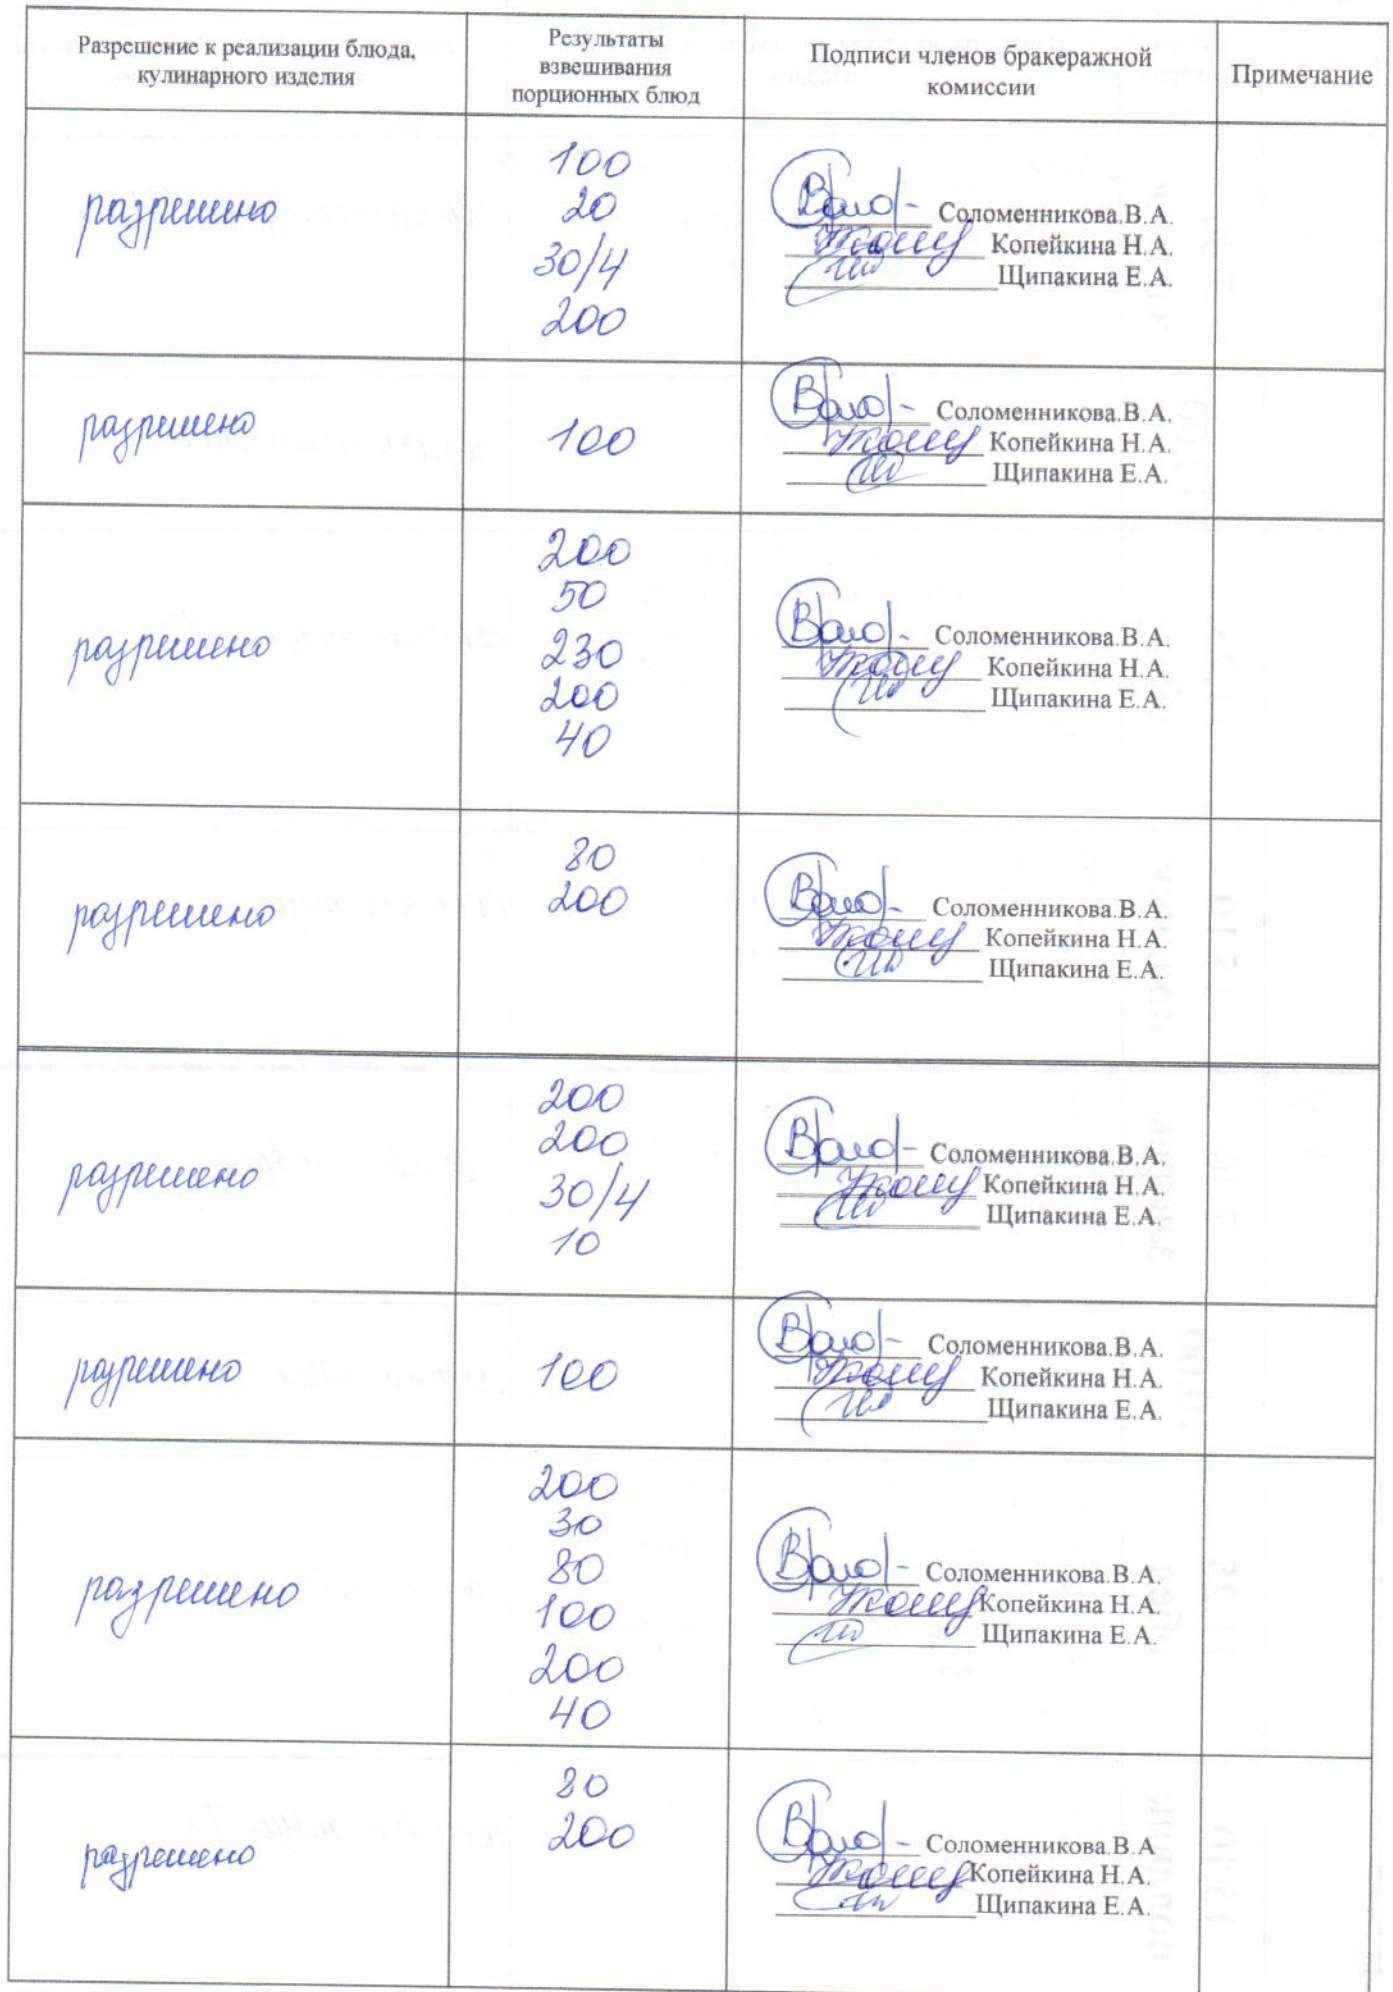 Разрешение к реализации блюда,
кулинарного изделия
Результаты
взвешивания
порционных блюд
Подписи членов бракеражной
комиссии
Примечание
разрешено
100
20
30/4
200
Соломенникова.В.А.
Копейкина Н.А.
Щипакина Е.А.
разрешено
100
Соломенникова.В.А.
Копейкина Н.А.
Щипакина Е.А.
разрешено
200
50
230
200
40
Соломенникова.В.А.
Копейкина Н.А.
Щипакина Е.А.
разрешено
80
200
Соломенникова.В.А.
Копейкина Н.А.
Щипакина Е.А.
разрешено
200
200
30/4
10
Соломенникова.В.А.
Копейкина Н.А.
Щипакина Е.А.
разрешено
100
Соломенникова.В.А.
Копейкина Н.А.
Щипакина Е.А.
разрешено
200
30
80
100
200
40
Соломенникова.В.А.
Копейкина Н.А.
Щипакина Е.А.
разрешено
80
200
Соломенникова.В.А
Копейкина Н.А.
Щипакина Е.А.